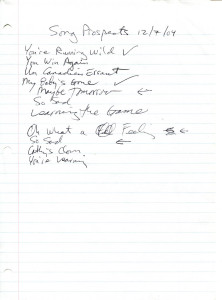 Song Prospects 12/4/04
You're Running Wild ✓
You Win Again
Un Canadien Errant
My Baby's Gone ✓
Maybe Tomorrow ←
So Sad
Learning the Game
Oh What a Feeling ←
So Sad ←
Cathy's Clown
You're Learning